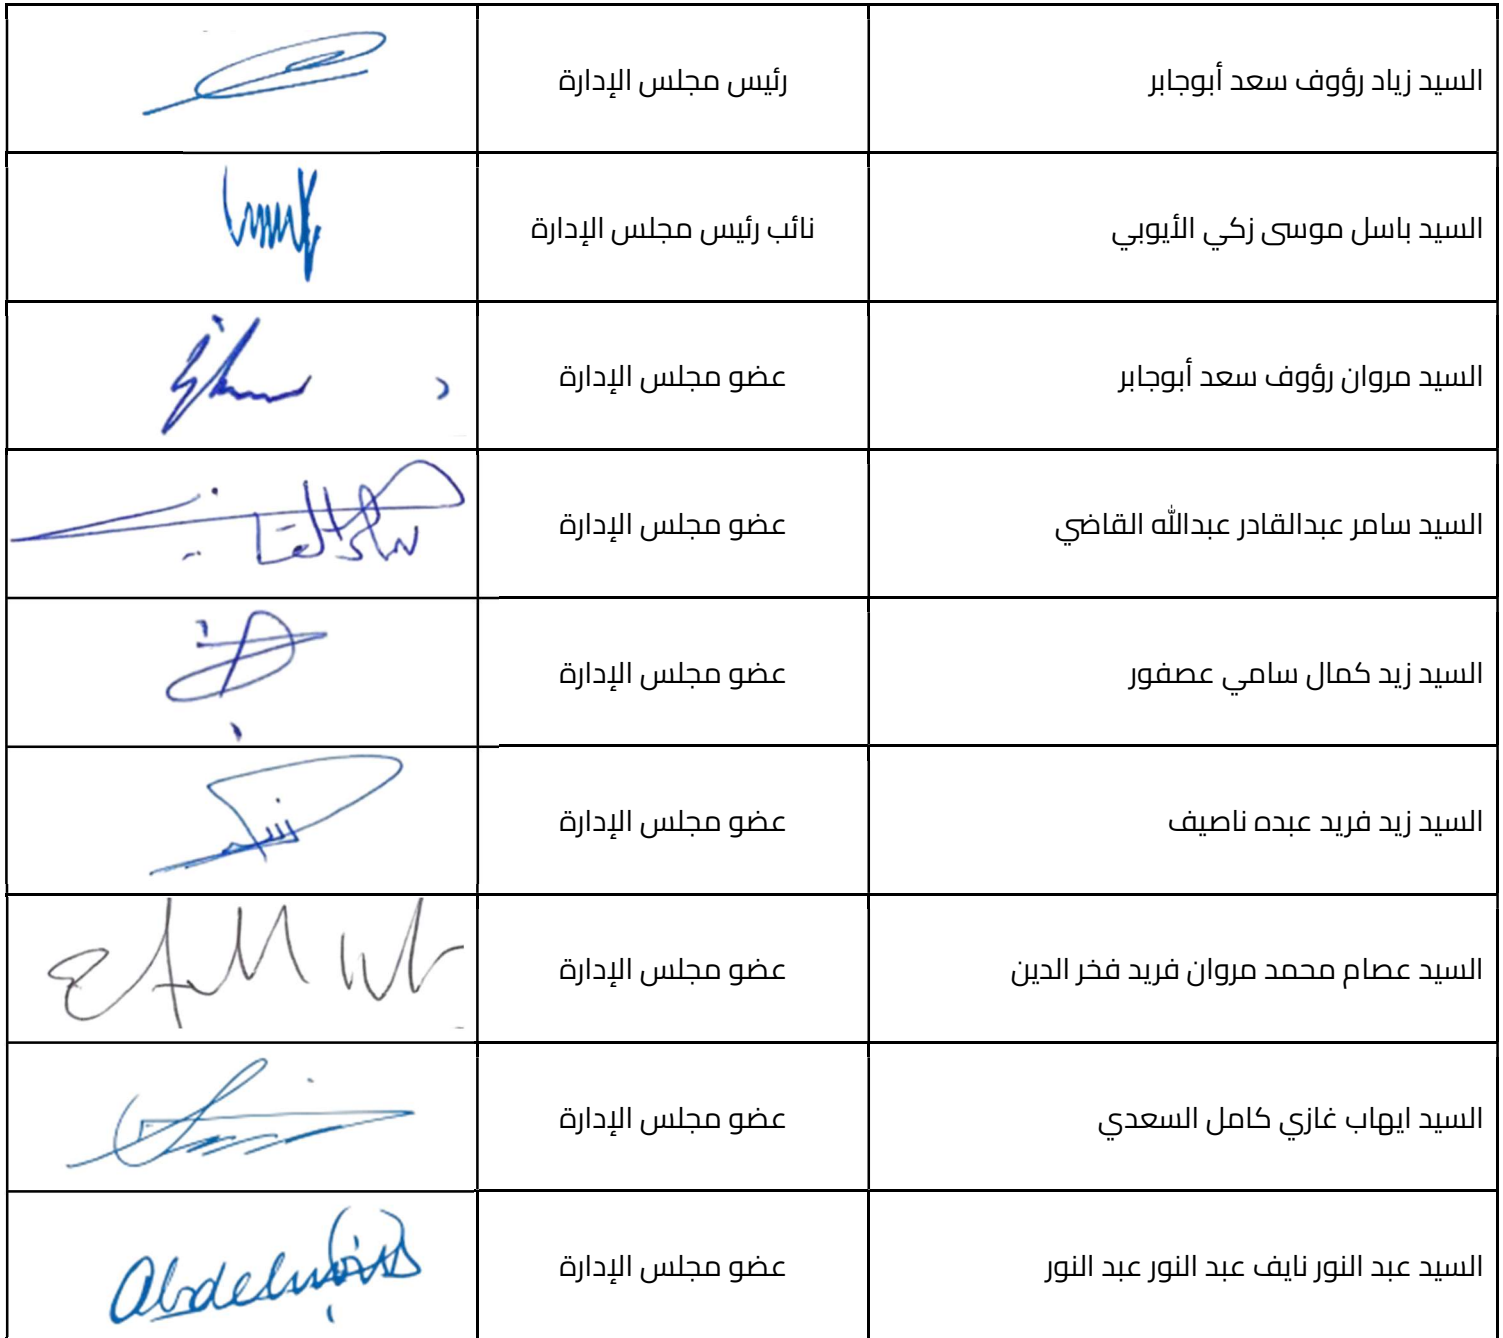 السيد زياد رؤوف سعد أبوجابر رئيس مجلس الإدارة
السيد باسل موسى زكي الأيوبي نائب رئيس مجلس الإدارة
السيد مروان رؤوف سعد أبوجابر عضو مجلس الإدارة
السيد سامر عبدالقادر عبدالله القاضي عضو مجلس الإدارة
السيد زيد كمال سامي عصفور عضو مجلس الإدارة
السيد زيد فريد عبده ناصيف عضو مجلس الإدارة
السيد عصام محمد مروان فريد فخر الدين عضو مجلس الإدارة
السيد ايهاب غازي كامل السعدي عضو مجلس الإدارة
السيد عبد النور نايف عبد النور عبد النور عضو مجلس الإدارة